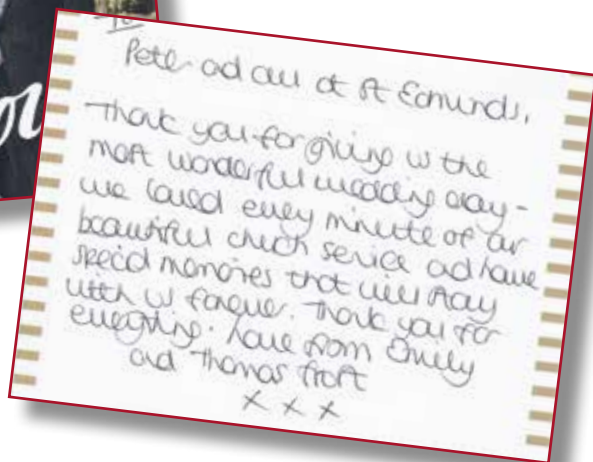 To
Peter and all at St Edmunds,
Thank you for giving us the
most wonderful wedding day -
we loved every minute of our
beautiful church service and have
special memories that will stay
with us forever. Thank you for
everything. Love from Emily
and Thomas Frost
x x x